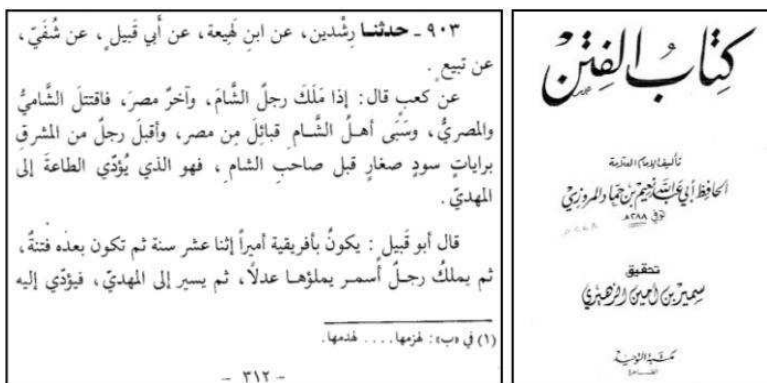 ٩٠٣ - حدثنا رِشْدين، عن ابنِ لَهيعة، عن أبي قَبيل، عن شُفَيّ،
عن تبيع.
عن كعبٍ قال: إذا مَلَكَ رجلٌ الشَّامَ، وآخرُ مصرَ، فاقتتلَ الشَّاميُّ
والمصريُّ، وسَبَى أهلُ الشَّام قبائلَ مِن مصر، وأقبلَ رجلٌ من المشرقِ
براياتٍ سودٍ صغارٍ قبل صاحبِ الشام، فهو الذي يُؤدّي الطاعةَ إلى
المهديّ.
قال أبو قَبيل: يكونُ بأفريقية أميراً إثنا عشر سنة ثم تكون بعده فتنةٌ،
ثم يملكُ رجلٌ أسمر يملؤها عدلًا، ثم يسير إلى المهديّ، فيؤدّي إليه
(١) في «ب»: لهزمها.... لهدمها.
- ٣١٢ -
كِتَابُ الفِتَن
تأليف الإمام العلامة
الحافظ أبي عبد الله نعيم بن حماد المروزي
توفي ٢٨٨هـ
تحقيق
سمير بن أمين الزهيري
مكتبة التوحيد
القاهرة